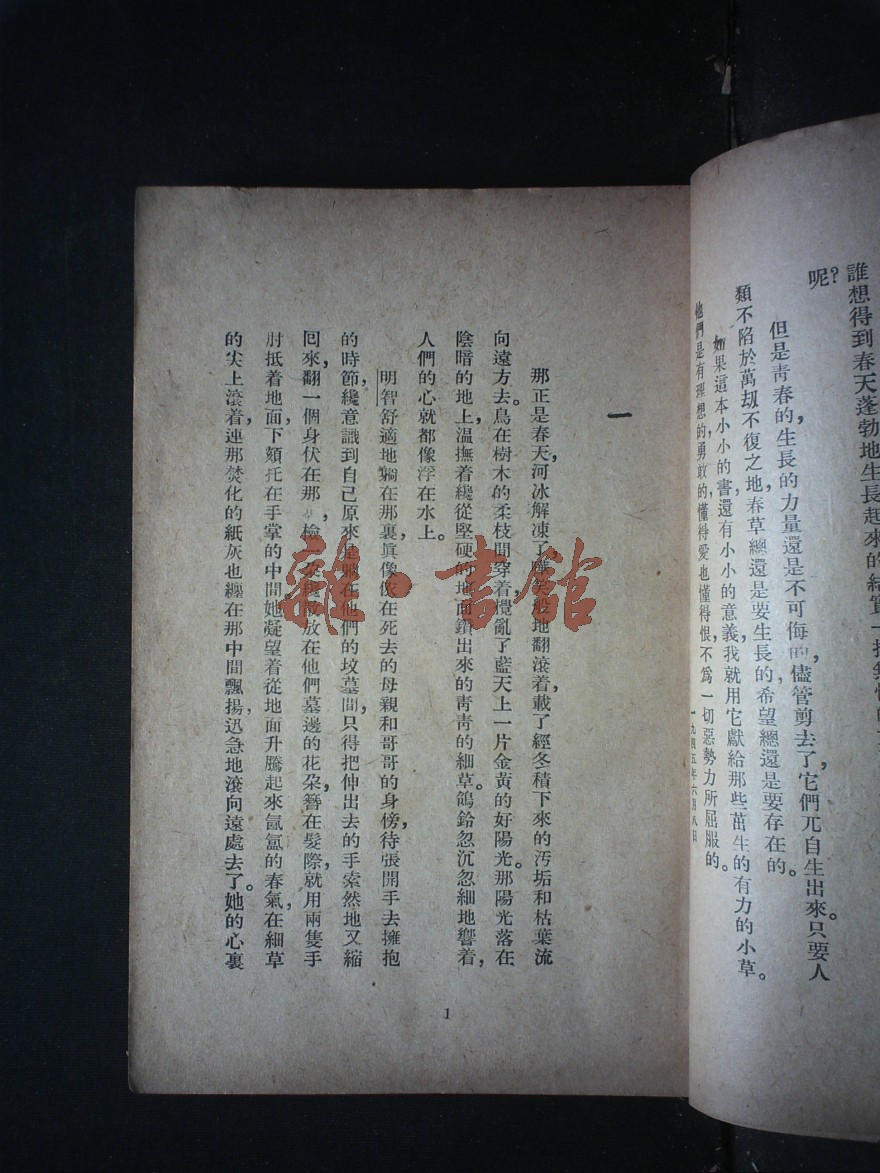 誰想得到春天蓬勃地生長起來的結實
呢?
但是靑春的生長的力量還是不可侮的,儘管剪去了,它們兀自生出來。只要人
類不陷於萬刼不復之地,春草總還是要生長的,希望總還是要存在的。
如果這本小小的書還有小小的意義,我就用它獻給那些茁生的有力的小草。
他們是有理想的,勇敢的,懂得愛也懂得恨,不爲一切惡勢力所屈服的。
一九四五年六月八日
一
那正是春天,河冰解凍了,嘩笑般地翻滾着,載了經冬積下來的汚垢和枯葉流
向遠方去。鳥在樹木的柔枝間穿着,攪亂了藍天上一片金黃的好陽光。那陽光落在
陰暗的地上,溫撫着纔從堅硬的地面鑽出來的靑靑的細草。鴿鈴忽沉忽細地響着,
人們的心就都像浮在水上。
明智舒適地躺在那裏,眞像依在死去的母親和哥哥的身傍,待張開手去擁抱
的時節,纔意識到自己原來是躺在他們的墳墓間,只得把伸出去的手索然地又縮
囘來,翻一個身伏在那,檢一朵纔散放在他們墓邊的花朶,簪在髮際,就用兩隻手
肘抵着地面,下頦托在手掌的中間,她凝望着從地面升騰起來氤氳的春氣,在細草
的尖上滾着,連那焚化的紙灰也纏在那中間飄揚,迅急地滾向遠處去了。她的心裏
1
雜·書館